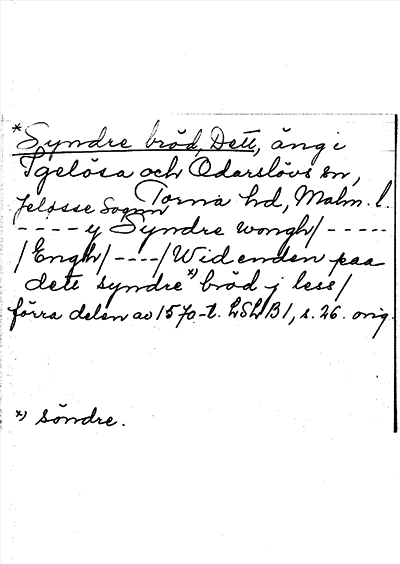 *Syndre bröd, Dett, äng i
Igelösa och Odarslövs sn,
Torna hd, Malm. l.
Jelosse Sognn
- - - - y Syndre wongh/ - - - - -
/Engh/ - - - -/Wid enden paa
dett syndre *) bröd j less/
förra delen av 1570-t. LSLB1, s. 26. orig.
*) söndre.